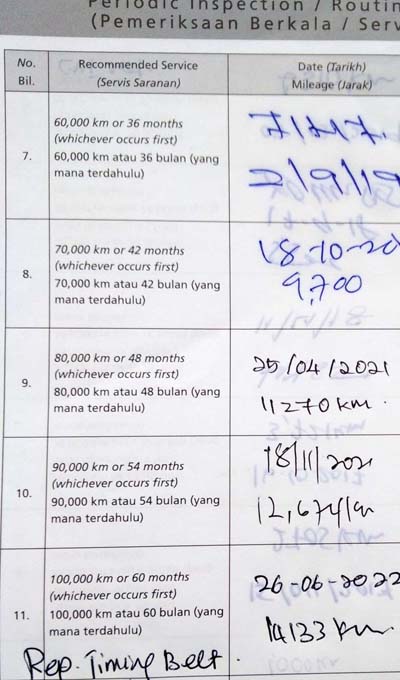 Periodic Inspection / Routin
(Pemeriksaan Berkala / Serv
No.
Bil.
Recommended Service
(Servis Saranan)
Date (Tarikh)
Mileage (Jarak)
7.
60,000 km or 36 months
(whichever occurs first)
60,000 km atau 36 bulan (yang
mana terdahulu)
8.
70,000 km or 42 months
(whichever occurs first)
70,000 km atau 42 bulan (yang
mana terdahulu)
18-10-20
9,700
9.
80,000 km or 48 months
(whichever occurs first)
80,000 km atau 48 bulan (yang
mana terdahulu)
25/04/2021
11270 km.
10.
90,000 km or 54 months
(whichever occurs first)
90,000 km atau 54 bulan (yang
mana terdahulu)
18/11/2021
12,674 km
11.
100,000 km or 60 months
(whichever occurs first)
100,000 km atau 60 bulan (yang
mana terdahulu)
26-06-2022
14133 km.
Rep. Timing Belt.